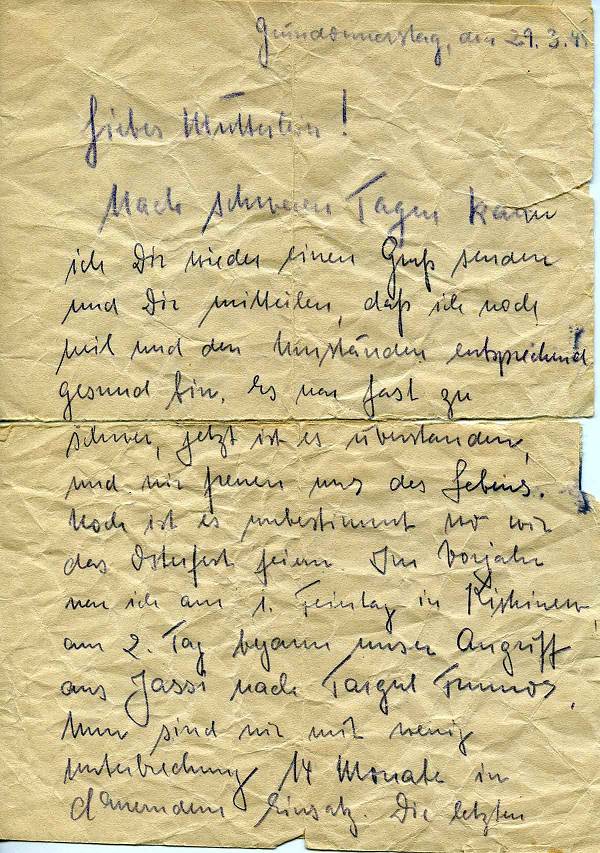 Gründonnerstag, den 29. 3. 45
Liebes Mütterlein!
Nach schweren Tagen kann
ich Dir wieder einen Gruß senden
und Dir mitteilen, daß ich noch
heil und den Umständen entsprechend
gesund bin. Es war fast zu
schwer, jetzt ist es überstanden,
und wir freuen uns des Lebens.
Noch ist es unbestimmt wo wir
das Osterfest feiern. Im Vorjahr
war ich am 1. Feiertag in Kischinew,
am 2. Tag begann unser Angriff
aus Jassi nach Targul Frumos
Nun sind wir mit wenig
Unterbrechung 14 Monate in
dauerndem Einsatz. Die letzten